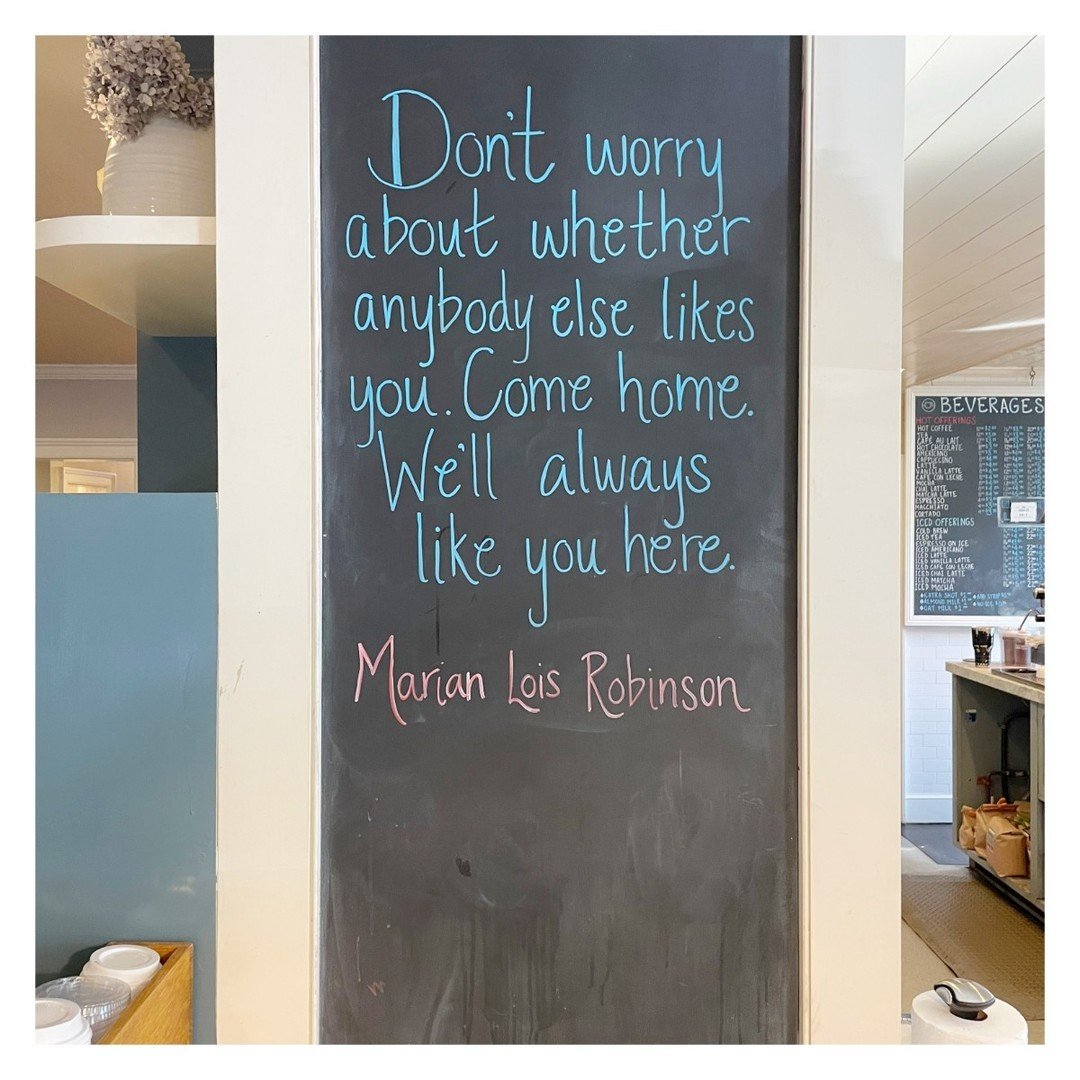 Don't worry
about whether
anybody else likes
you. Come home.
We'll always
like you here.
Marian Lois Robinson
BEVERAGES
HOT OFFERINGS
HOT COFFEE
TEA
CAFE AU LAIT
HOT CHOCOLATE
AMERICANO
CAPPUCCINO
LATTE
VANILLA LATTE
CAFE CON LECHE
MOCHA
CHAI LATTE
MATCHA LATTE
ESPRESSO
MACCHIATO
CORTADO
ICED OFFERINGS
COLD BREW
ICED TEA
ESPRESSO ON ICE
ICED AMERICANO
ICED LATTE
ICED VANILLA LATTE
ICED CAFE CON LECHE
ICED CHAI LATTE
ICED MATCHA
ICED MOCHA
EXTRA SHOT
ALMOND MILK
OAT MILK